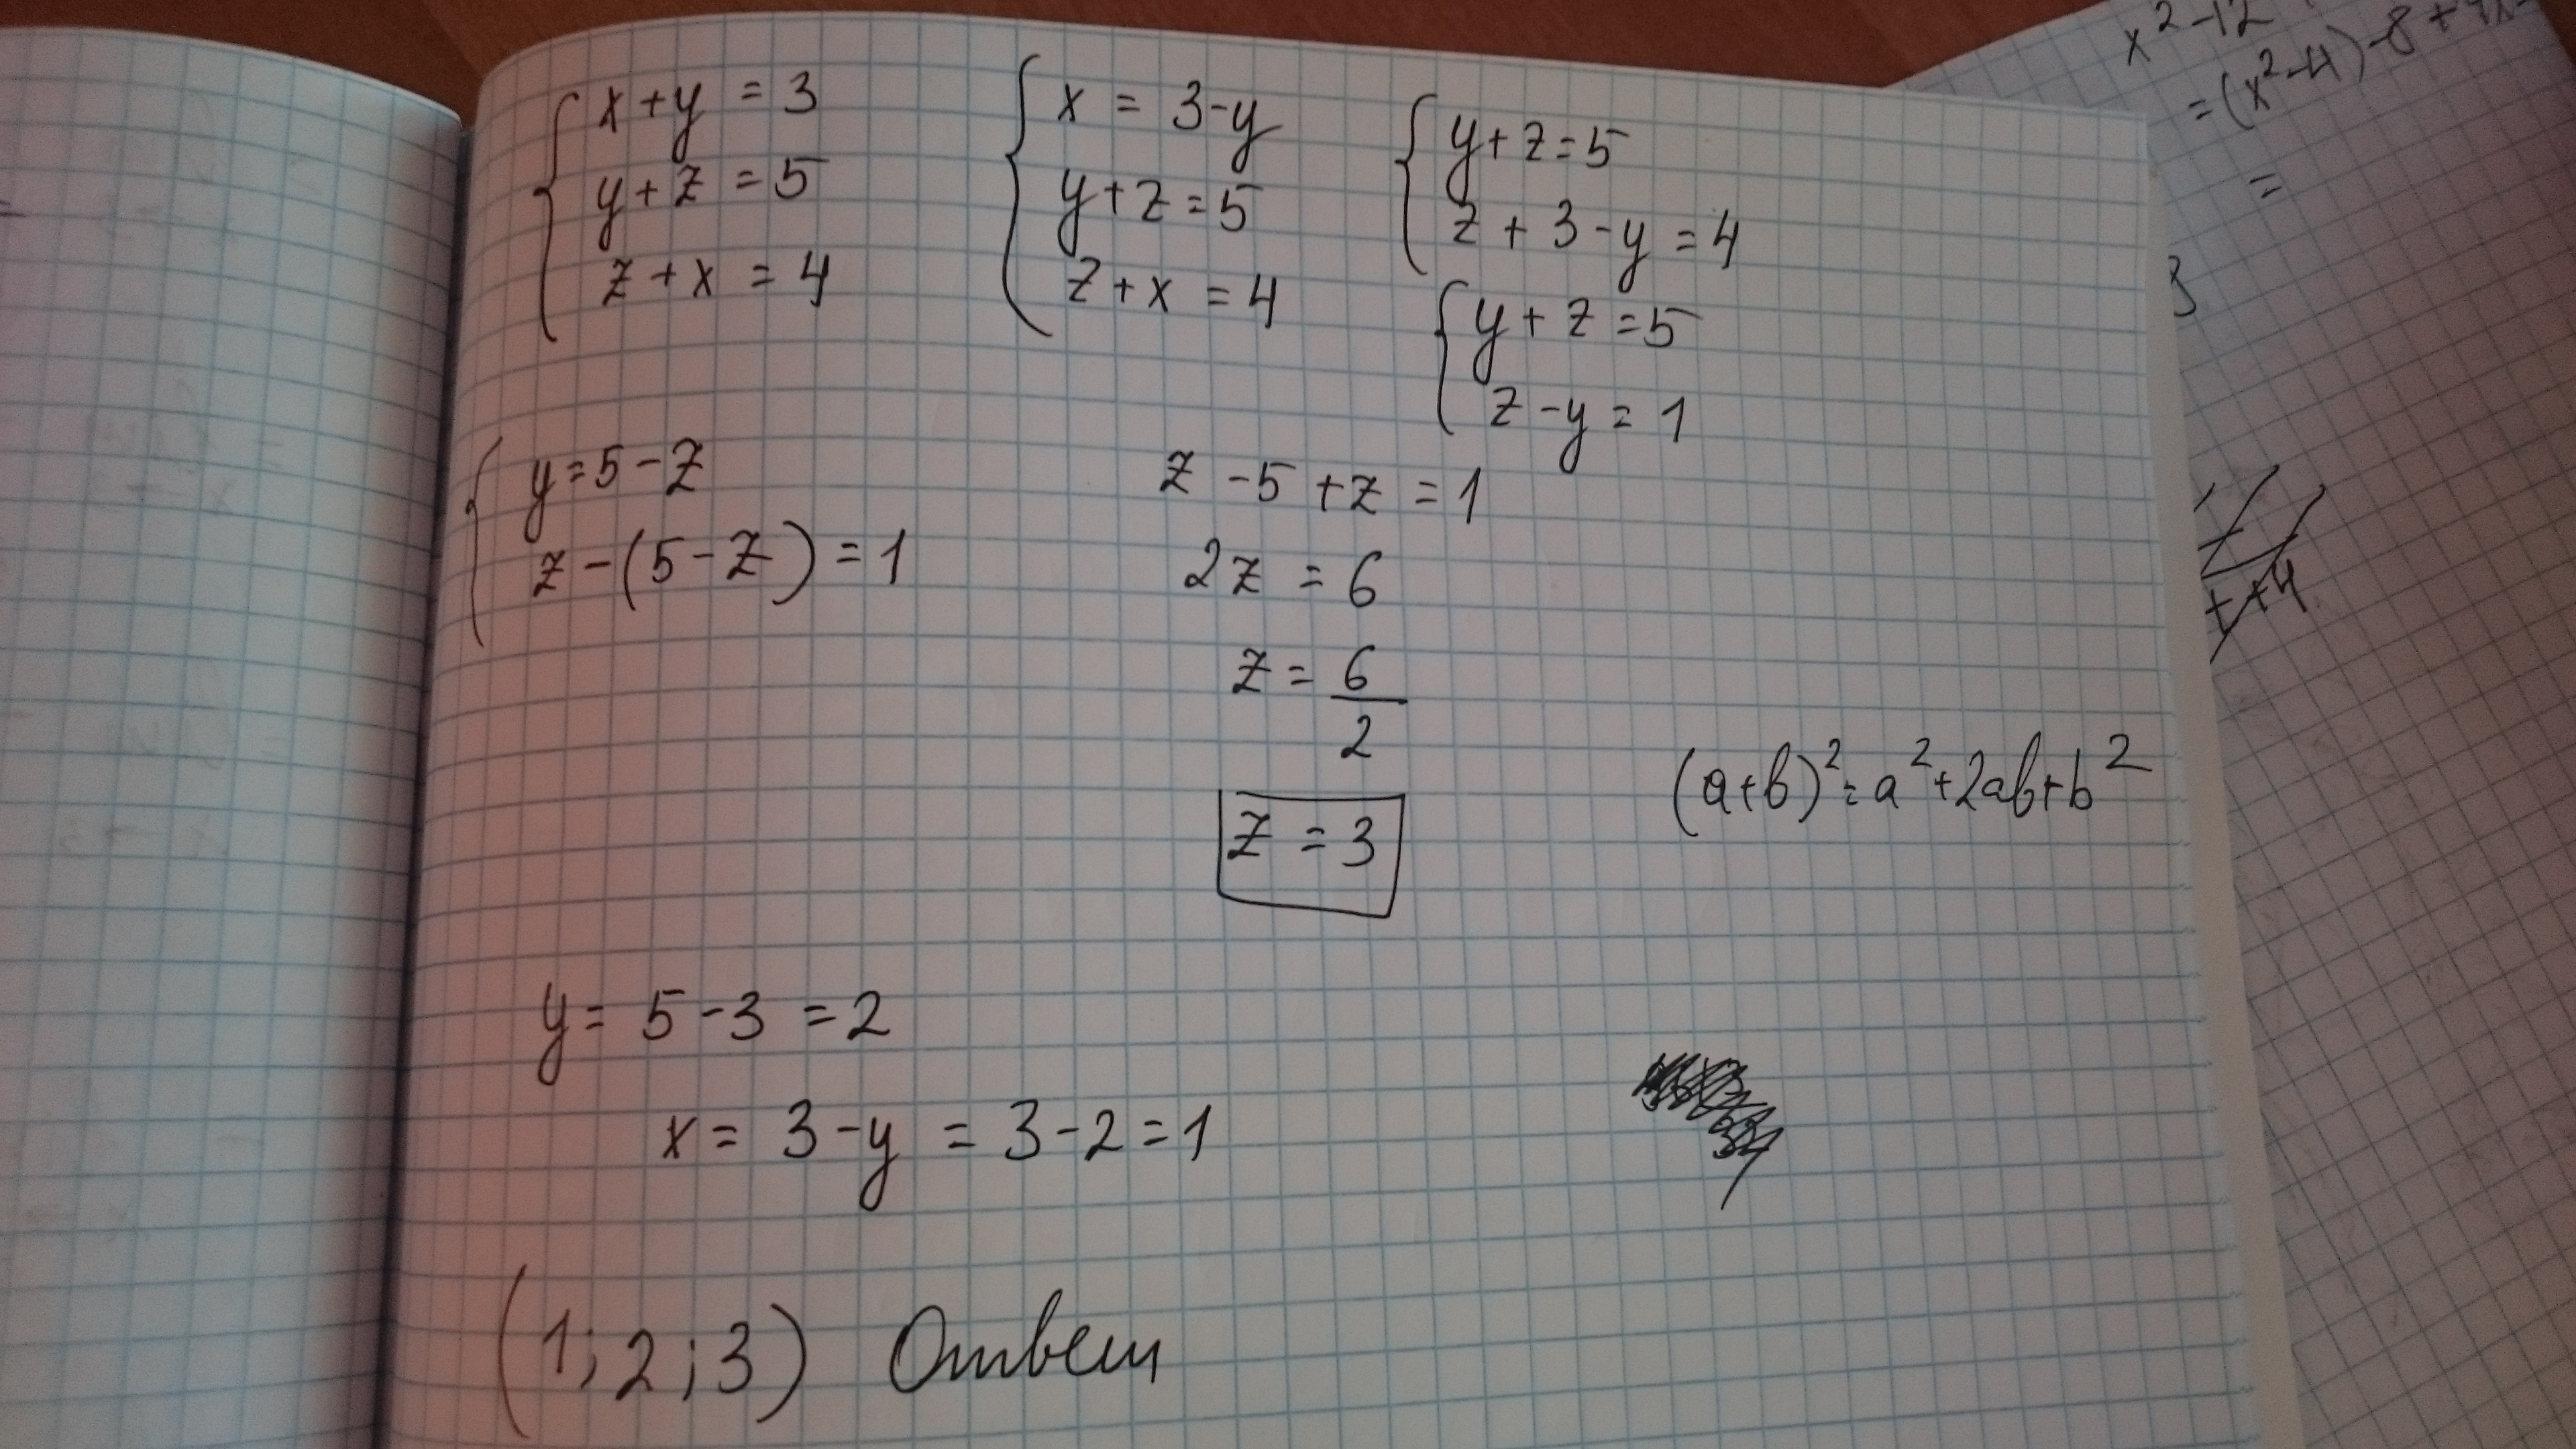 x + y = 3
y + z = 5
z + x = 4
x = 3 - y
y + z = 5
z + x = 4
y + z = 5
z + 3 - y = 4
y + z = 5
z - y = 1
y = 5 - z
z - (5 - z) = 1
z - 5 + z = 1
2z = 6
z = 6/2
z = 3
(a+b)² = a² + 2ab + b²
y = 5 - 3 = 2
x = 3 - y = 3 - 2 = 1
(1; 2; 3) Ответ
x² - 12
= (x² - 4) - 8 +
=
+ 4